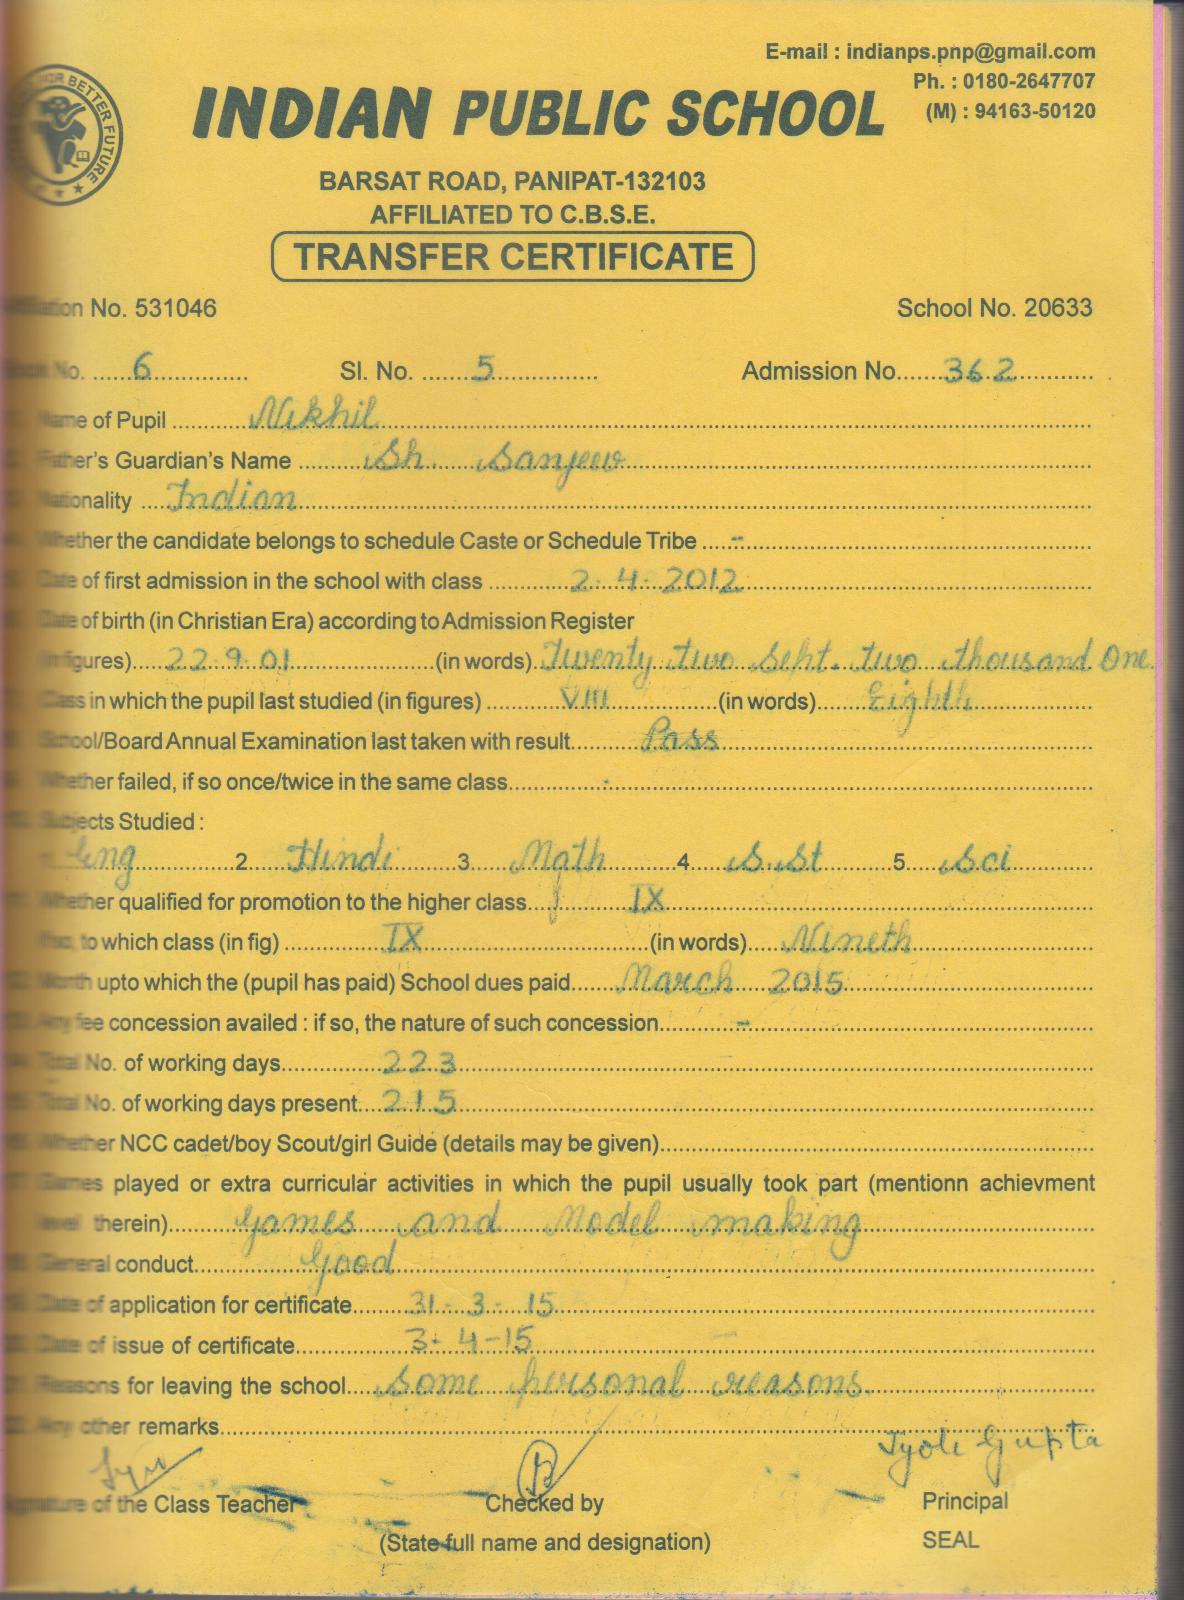 E-mail : indianps.pnp@gmail.com
Ph. : 0180-2647707
(M) : 94163-50120
FOR BETTER FUTURE
INDIAN PUBLIC SCHOOL
BARSAT ROAD, PANIPAT-132103
AFFILIATED TO C.B.S.E.
TRANSFER CERTIFICATE
No. 531046 School No. 20633
No. ......6.................. Sl. No. .......5............... Admission No.......362............
Name of Pupil ............Nikhil....................
Father's Guardian's Name .........Sh. Sanjeev....................
Nationality ...Indian....................
Whether the candidate belongs to schedule Caste or Schedule Tribe ....-....................
Date of first admission in the school with class ...........2-4-2012....................
Date of birth (in Christian Era) according to Admission Register
(in figures).....22.9.01....................(in words) Twenty two Sept. two thousand One.
Class in which the pupil last studied (in figures) ..........VIII...............(in words).......Eighth..............
School/Board Annual Examination last taken with result..........Pass....................
Whether failed, if so once/twice in the same class.............-....................
Subjects Studied :
Eng............2 Hindi..........3 Math..........4 S.St..........5 Sci
Whether qualified for promotion to the higher class..............IX
to which class (in fig) ..............IX....................(in words).....Nineth
Month upto which the (pupil has paid) School dues paid.......March 2015....................
Any fee concession availed : if so, the nature of such concession...........-....................
Total No. of working days..............223....................
Total No. of working days present...215....................
Whether NCC cadet/boy Scout/girl Guide (details may be given)....................
Games played or extra curricular activities in which the pupil usually took part (mentionn achievment
level therein).........Games and Model making....................
General conduct...............Good....................
Date of application for certificate........31-3-15....................
Date of issue of certificate..............3-4-15....................
Reasons for leaving the school....Some personal reasons.....................
Any other remarks....................
Jyoti Gupta
Signature of the Class Teacher Checked by Principal
(State full name and designation) SEAL